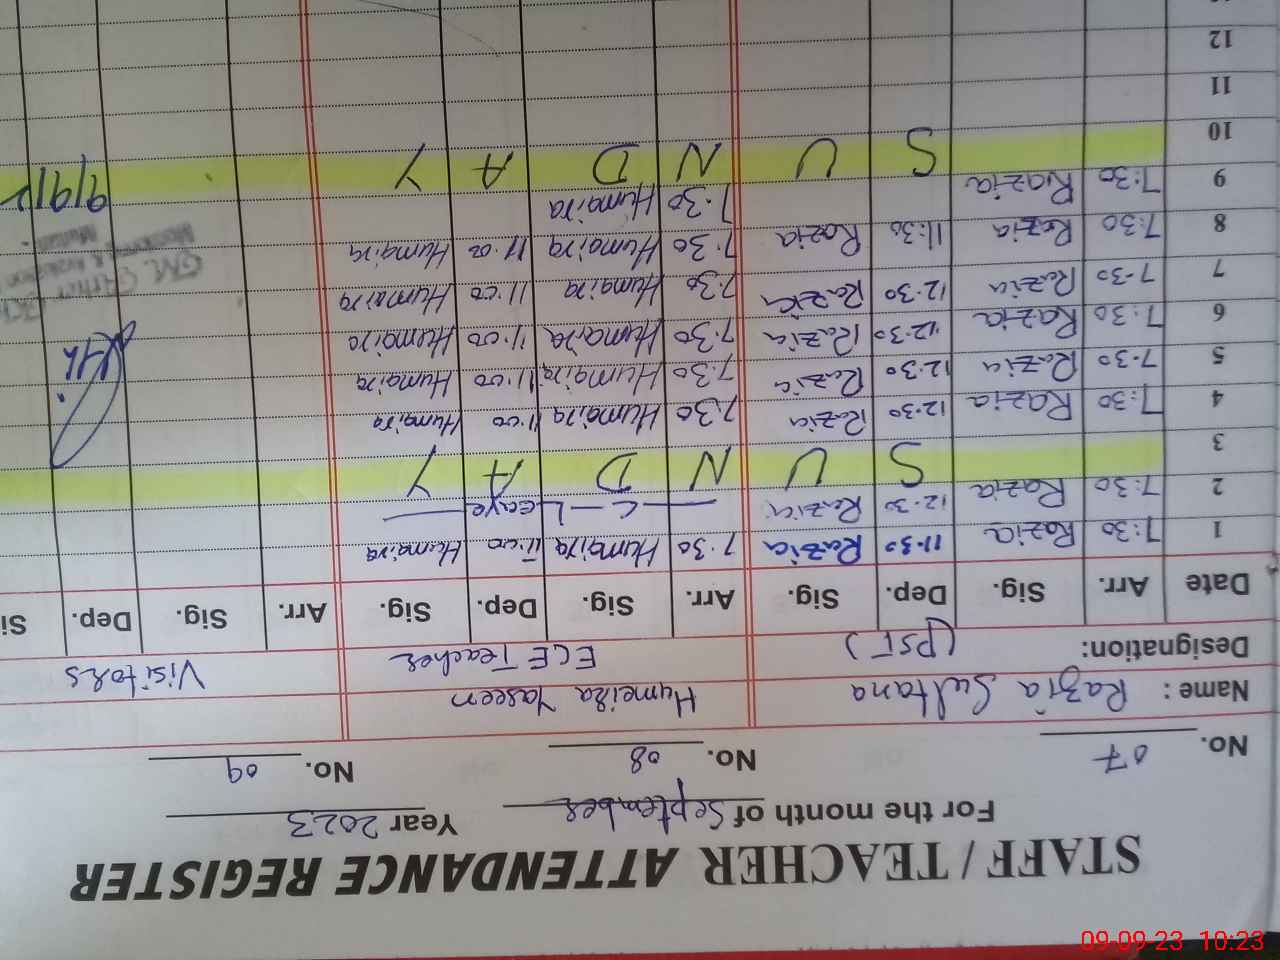 STAFF / TEACHER ATTENDANCE REGISTER
For the month of September Year 2023
No. 07 No. 08 No. 09
Name: Razia Sultana Humeira Yaseen
Designation: (PST) ECE Teacher Visitors
Date Arr. Sig. Dep. Sig. Arr. Sig. Dep. Sig. Arr. Sig. Dep. Si
1 7:30 Razia 11.30 Razia 7.30 Humaira 11:00 Humaira
2 7:30 Razia 12.30 Razia — C — Leave —
3 S U N D A Y
4 7:30 Razia 12.30 Razia 7.30 Humaira 11:00 Humaira
5 7.30 Razia 12.30 Razia 7.30 Humaira 11:00 Humaira
6 7:30 Razia 12.30 Razia 7.30 Humaira 11:00 Humaira
7 7-30 Razia 12.30 Razia 7.30 Humaira 11:00 Humaira
8 7:30 Razia 11:30 Razia 7.30 Humaira 11.00 Humaira
9 7:30 Razia 7.30 Humaira
10 S U N D A Y
11
12
9/9/2
09-09-23 10:23